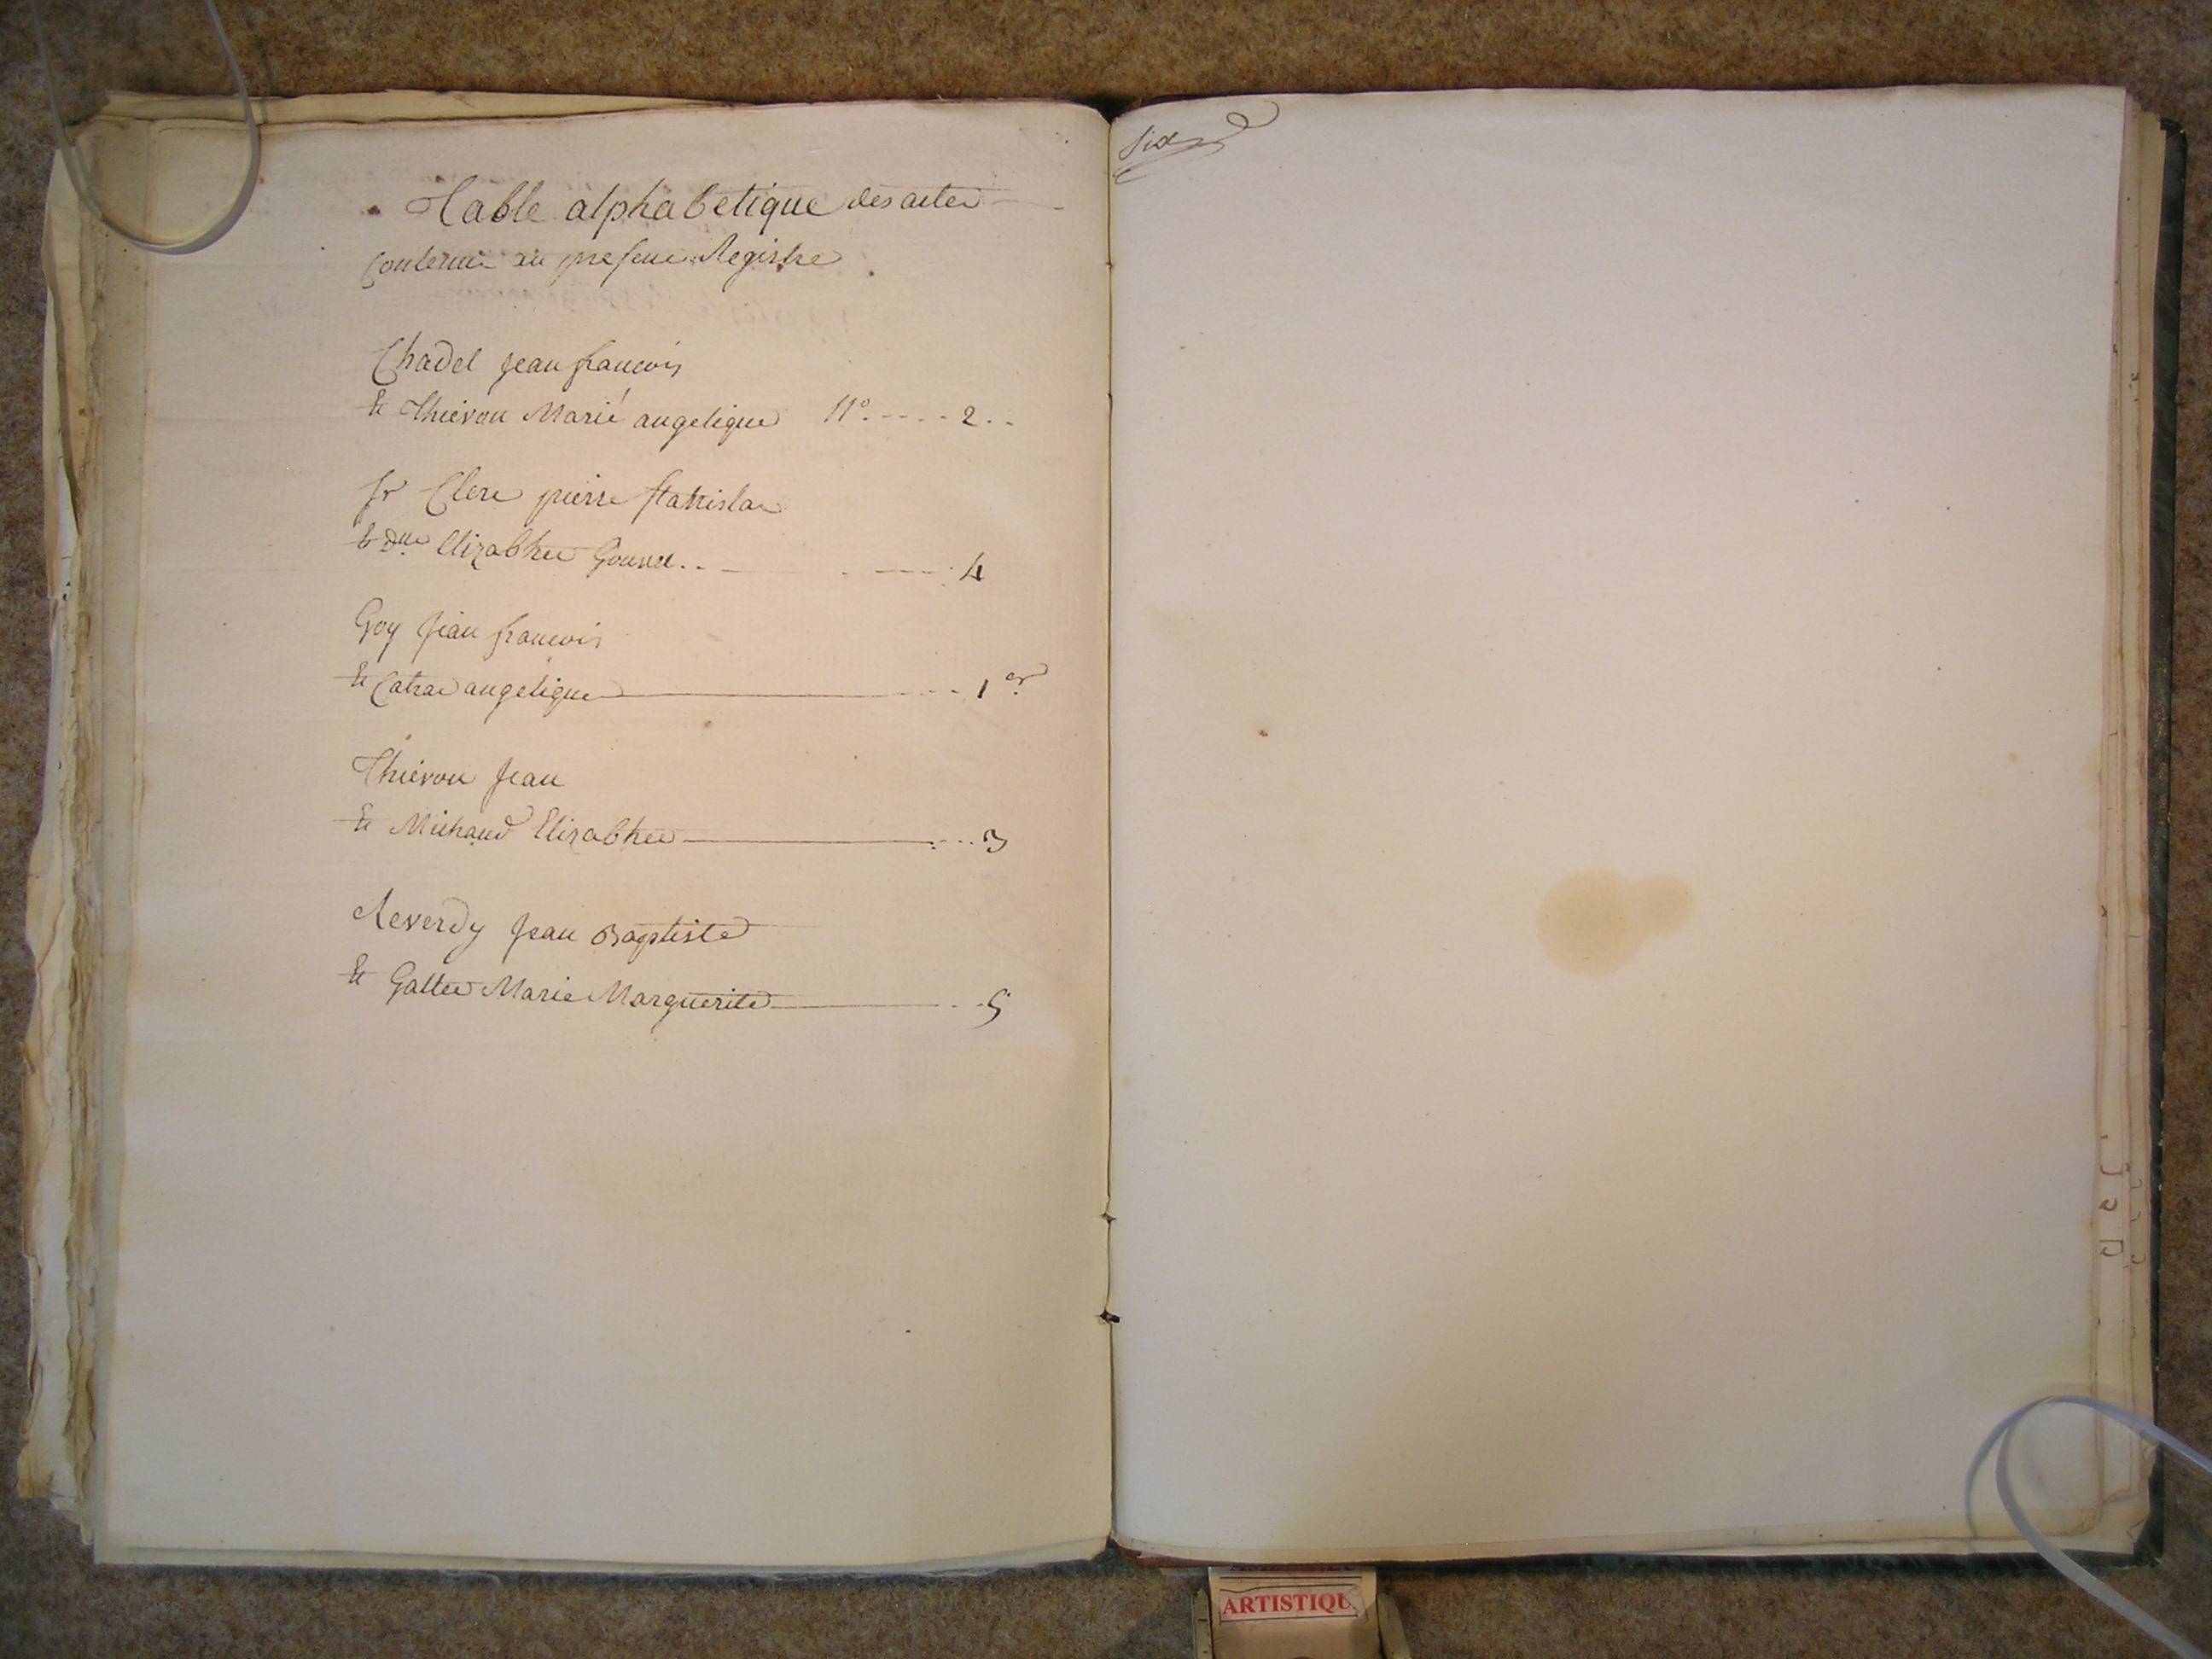 Table alphabetique des actes
Contenus au present Registre
Chadel Jean francois
Et Thievon Marie angelique N° 2
Sr Clerc pierre stanislas
Et Dlle Elizabhet 4
Goy Jean francois
Et Catraz angelique 1er
Thievon Jean
Et Michaud Elizabhet 3
Reverdy Jean Baptiste
Et Marie Marguerite 5
Six
ARTISTIQU